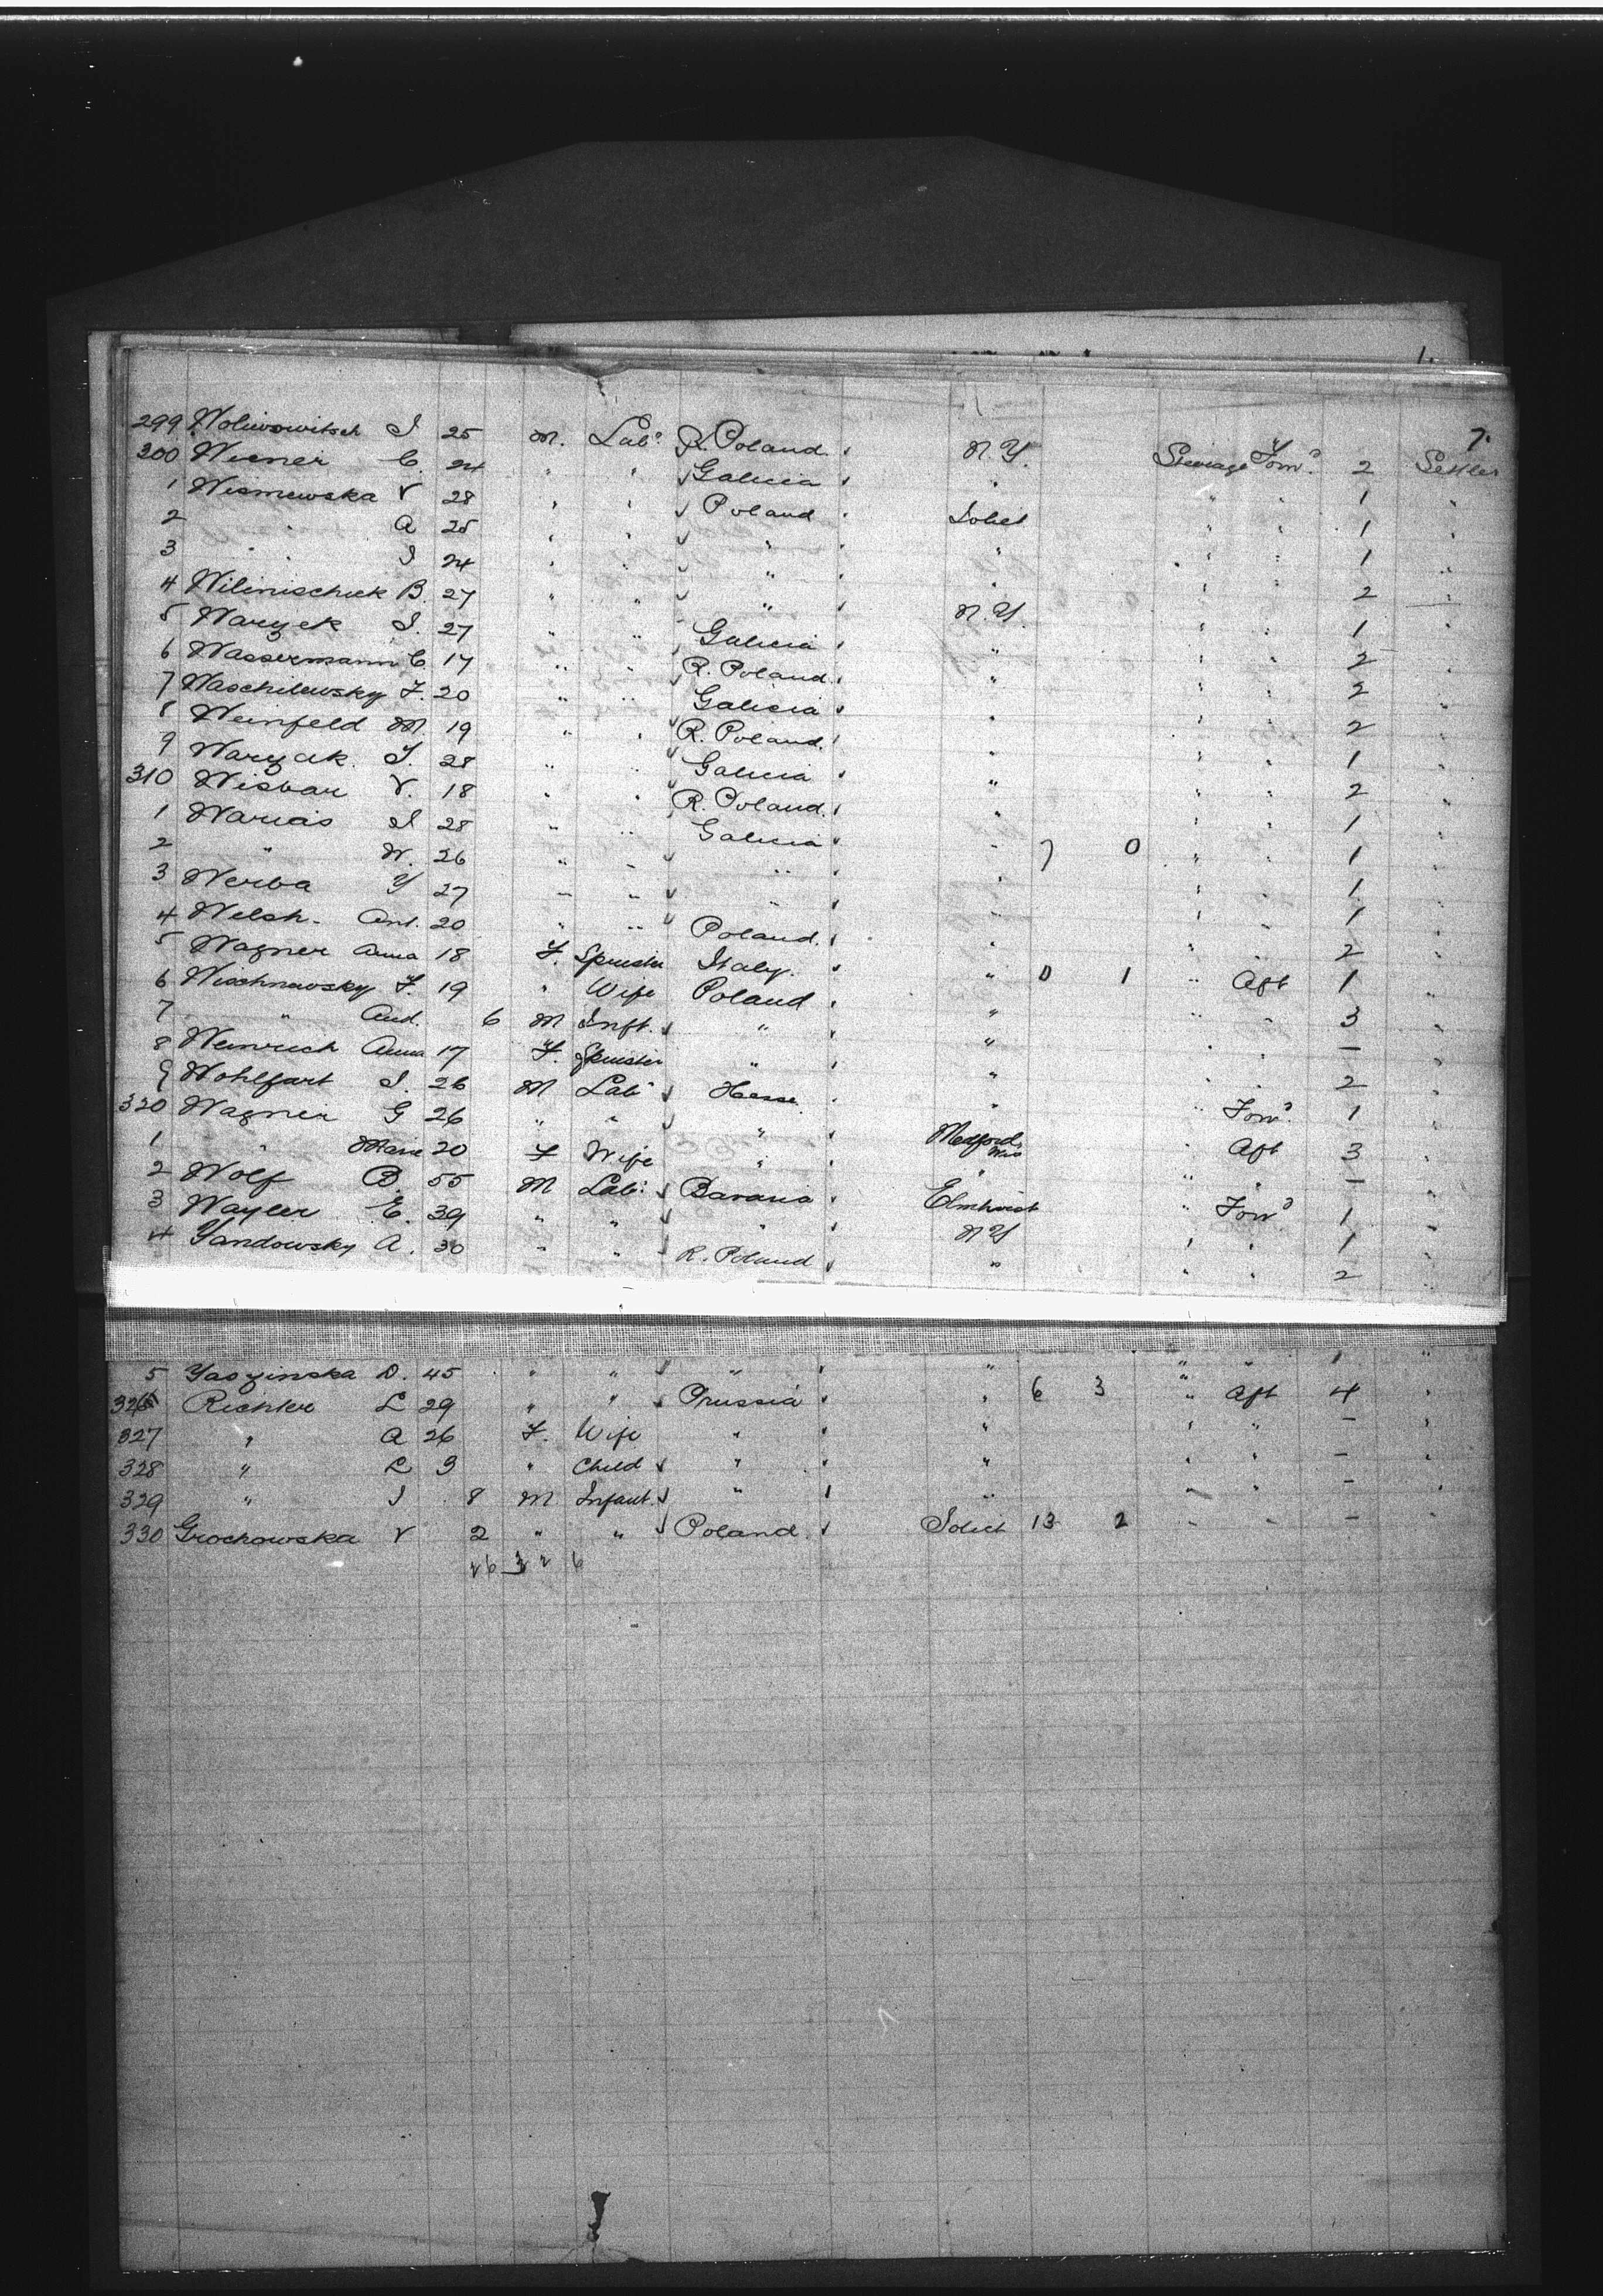 1.
7.
299 Woliwowitsch I 25 M. Lab? R. Poland N.Y. Steerage Forw? 2 Settler
300 Wiener C. 24 " " Galicia " " " 1 "
1 Wismewska V 28 " " Poland Joliet " " 1 "
2 " A 25 " " " " " " 1 "
3 " I 24 " " " " " " 2 "
4 Wilinischick B. 27 " " " N.Y. " " 1 "
5 Waryek I. 27 " " Galicia " " " 2 "
6 Wassermann C. 17 " " R. Poland. " " " 2 "
7 Waschilewsky F. 20 " " Galicia " " " 2 "
8 Weinfeld M. 19 " " R. Poland. " " " 1 "
9 Waryak. I. 28 " " Galicia " " " 2 "
310 Wisbar V. 18 " " R. Poland. " " " 1 "
1 Warias I 28 " " Galicia " 7 0 " " 1 "
2 " W. 26 " " " " " " 1 "
3 Werba Y 27 " " " " " " 1 "
4 Welsh. Ant. 20 " " Poland. " " " 2 "
5 Wagner Anna 18 F. Spinster Italy. " 0 1 " Aft 1 "
6 Wischnowsky F. 19 " Wife Poland " " " 3 "
7 " And. 6 M Inft. " " " " — "
8 Weinrich Anna 17 F. Spinster " " " " 2 "
9 Wohlfart I. 26 M Lab? Hesse " " Forw? 1 "
320 Wagner G 26 " " " Medford, Wis " Aft 3 "
1 " Marie 20 F Wife " " " " — "
2 Wolf B. 55 M Lab? Bavaria Elmhurst " Forw? 1 "
3 Wayler E. 39 " " " N Y " " 1 "
4 Yandowsky A. 30 " " R. Poland " " " 2 "
5 Yaozinska D. 45 " " " " " " 1 "
326 Richter L 29 " " Prussia " 6 3 " Aft 4 "
327 " A 26 F. Wife " " " " — "
328 " L 3 " Child " " " " — "
329 " I 8 M Infant. " " " " — "
330 Grochowska V 2 " " Poland. Joliet 13 2 " " — "